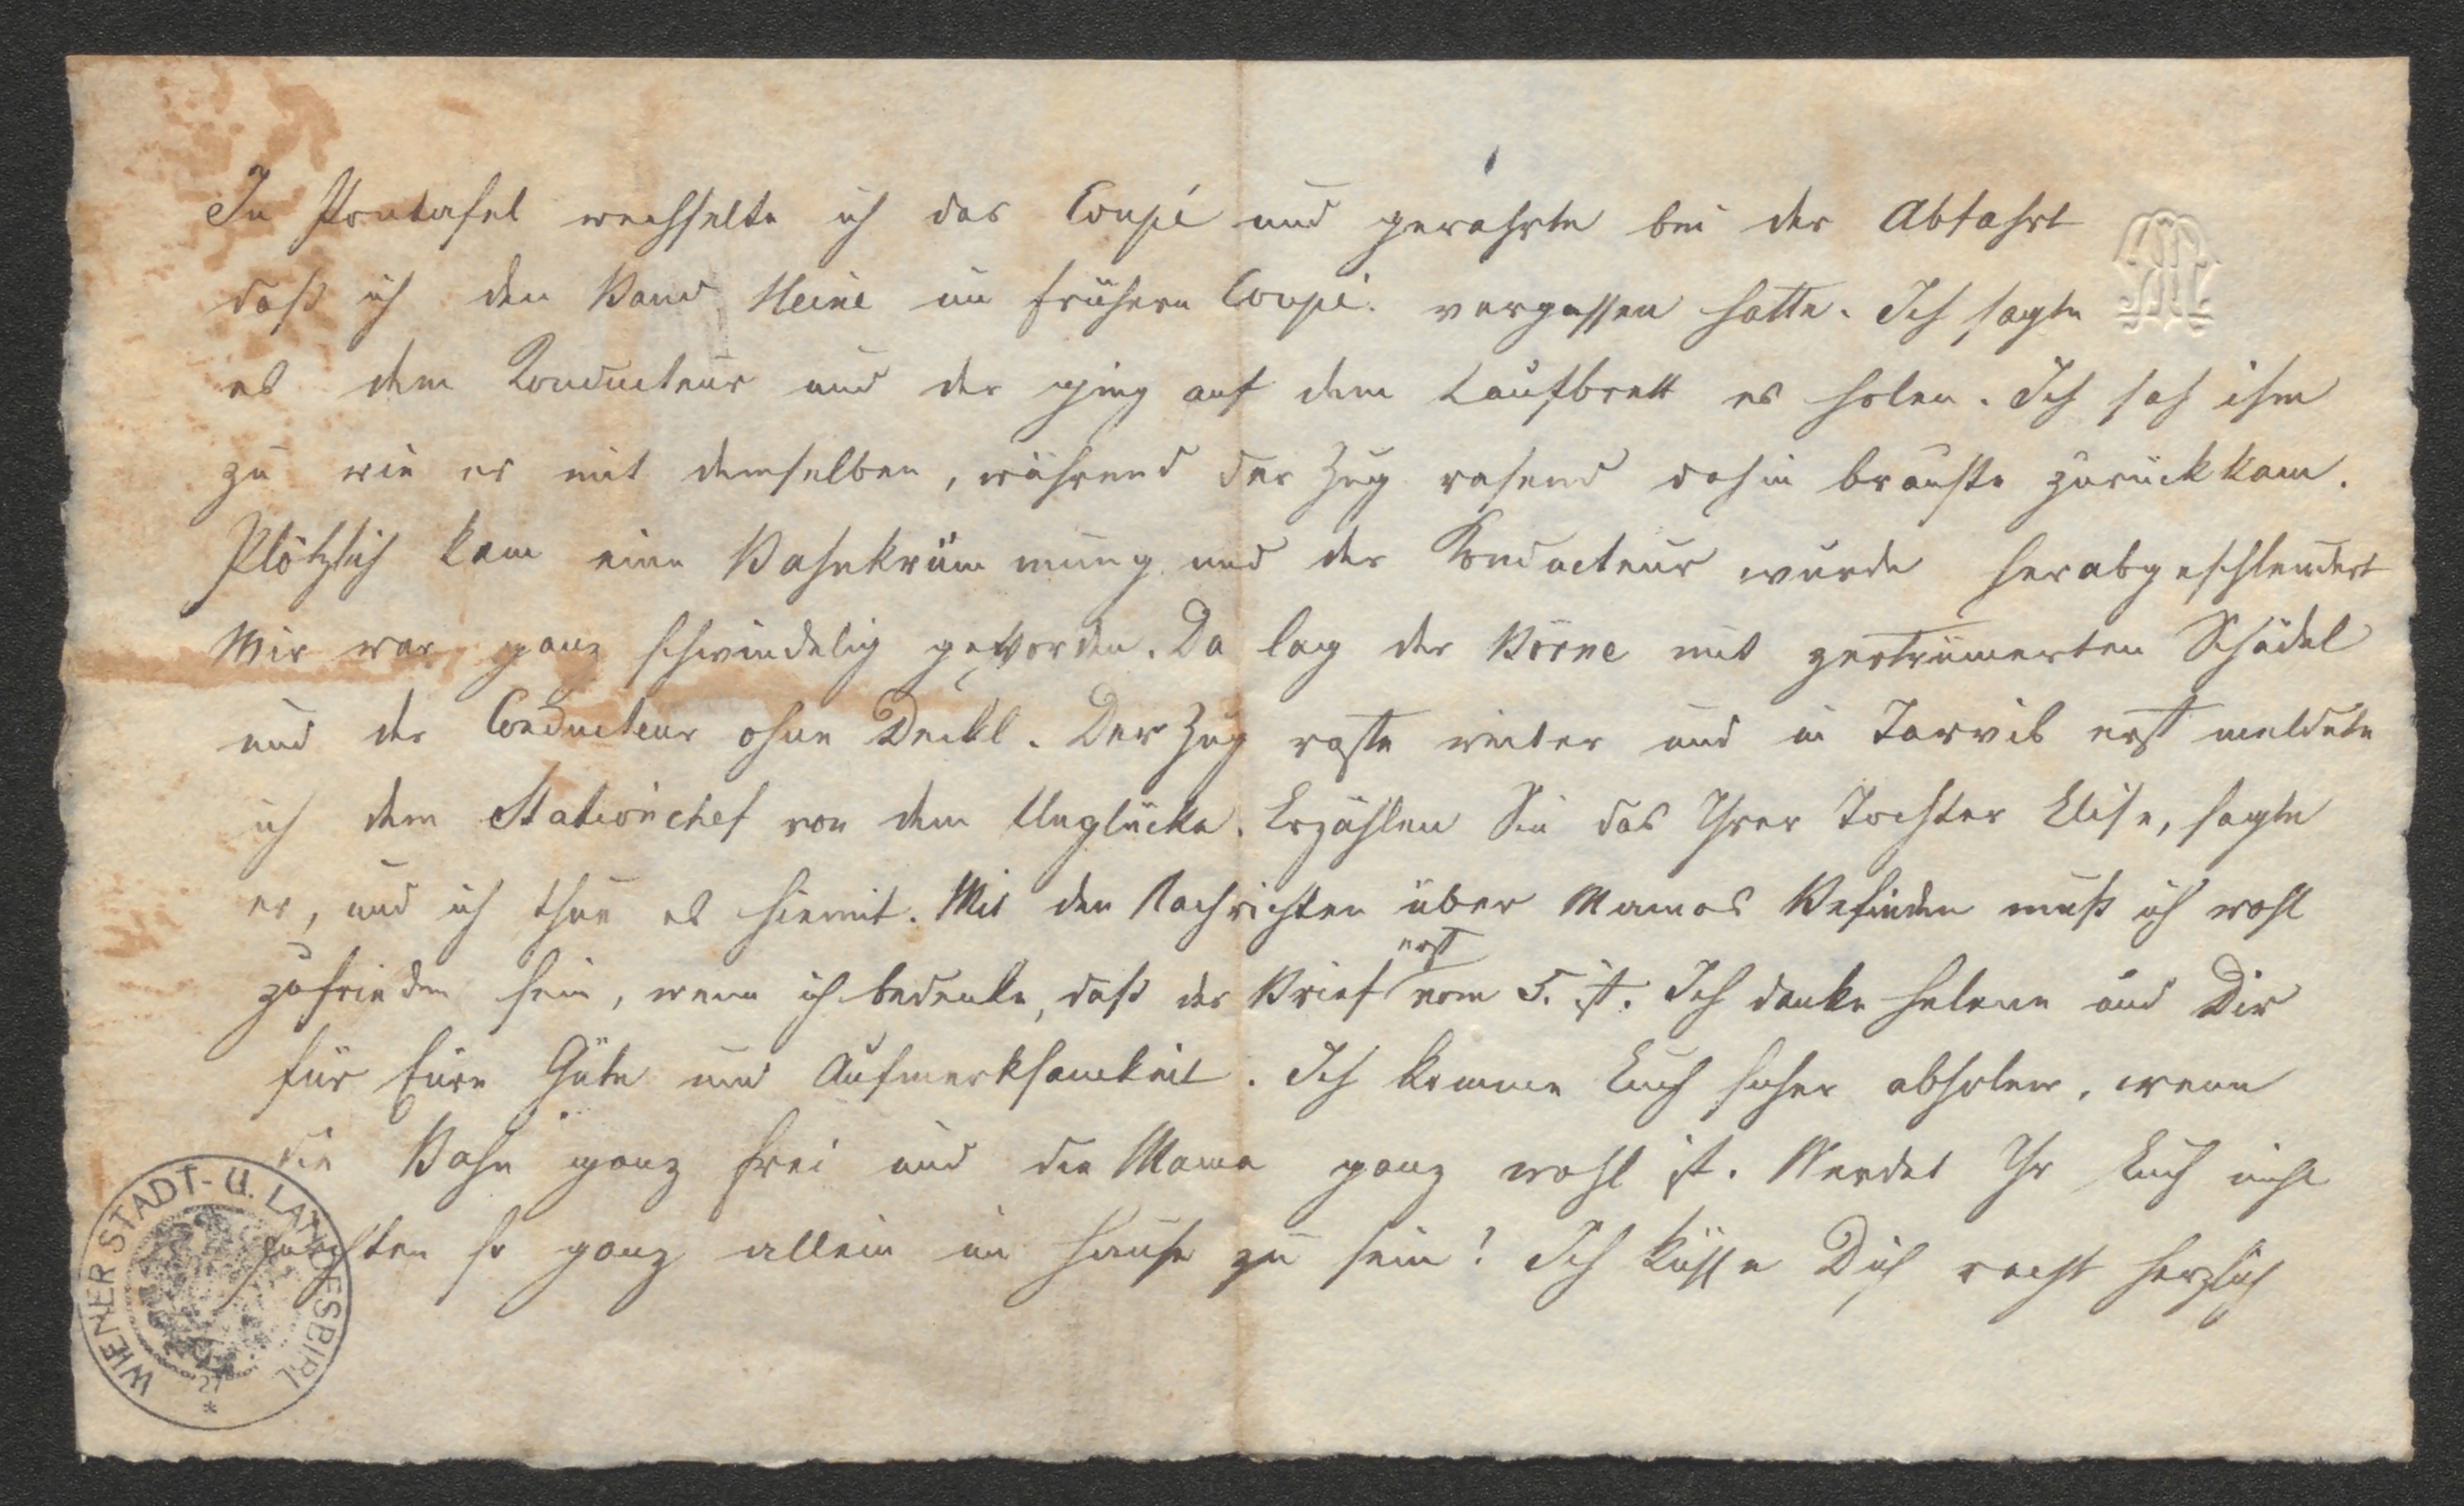 In Pontafel wechselte ich das Coupé und gewahrte bei der Abfahrt
daß ich den Band Heine im frühern Coupé vergessen hatte. Ich sagte
es dem Konducteur und der ging auf dem Laufbrett es holen. Ich sah ihm
zu wie er mit demselben, während der Zug rasend dahin brauste zurückkam.
Plötzlich kam eine Bahnkrümmung und der Konducteur wurde herabgeschleudert
Mir war ganz schwindelig geworden. Da lag der Börne mit zertrümerten Schädel
und der Conducteur ohne Deckl. Der Zug raste weiter und in Tarvis erst meldete
ich dem Stationchef von dem Unglücke. Erzählen Sie das Ihrer Tochter Elise, sagte
er, und ich thue es hiemit. Mit den Nachrichten über Mamas Befinden muß ich wohl
zufrieden sein, wenn ich bedenke, daß der Brief erst vom 5. ist. Ich danke Helene und Dir
für Eure Güte und Aufmerksamkeit. Ich komme Euch sicher abholen, wenn
die Bahn ganz frei und die Mama ganz wohl ist. Werdet Ihr Euch nicht
fürchten so ganz allein im Hause zu sein? Ich küsse Dich recht herzlich
WIENER STADT- U. LANDESBIBL